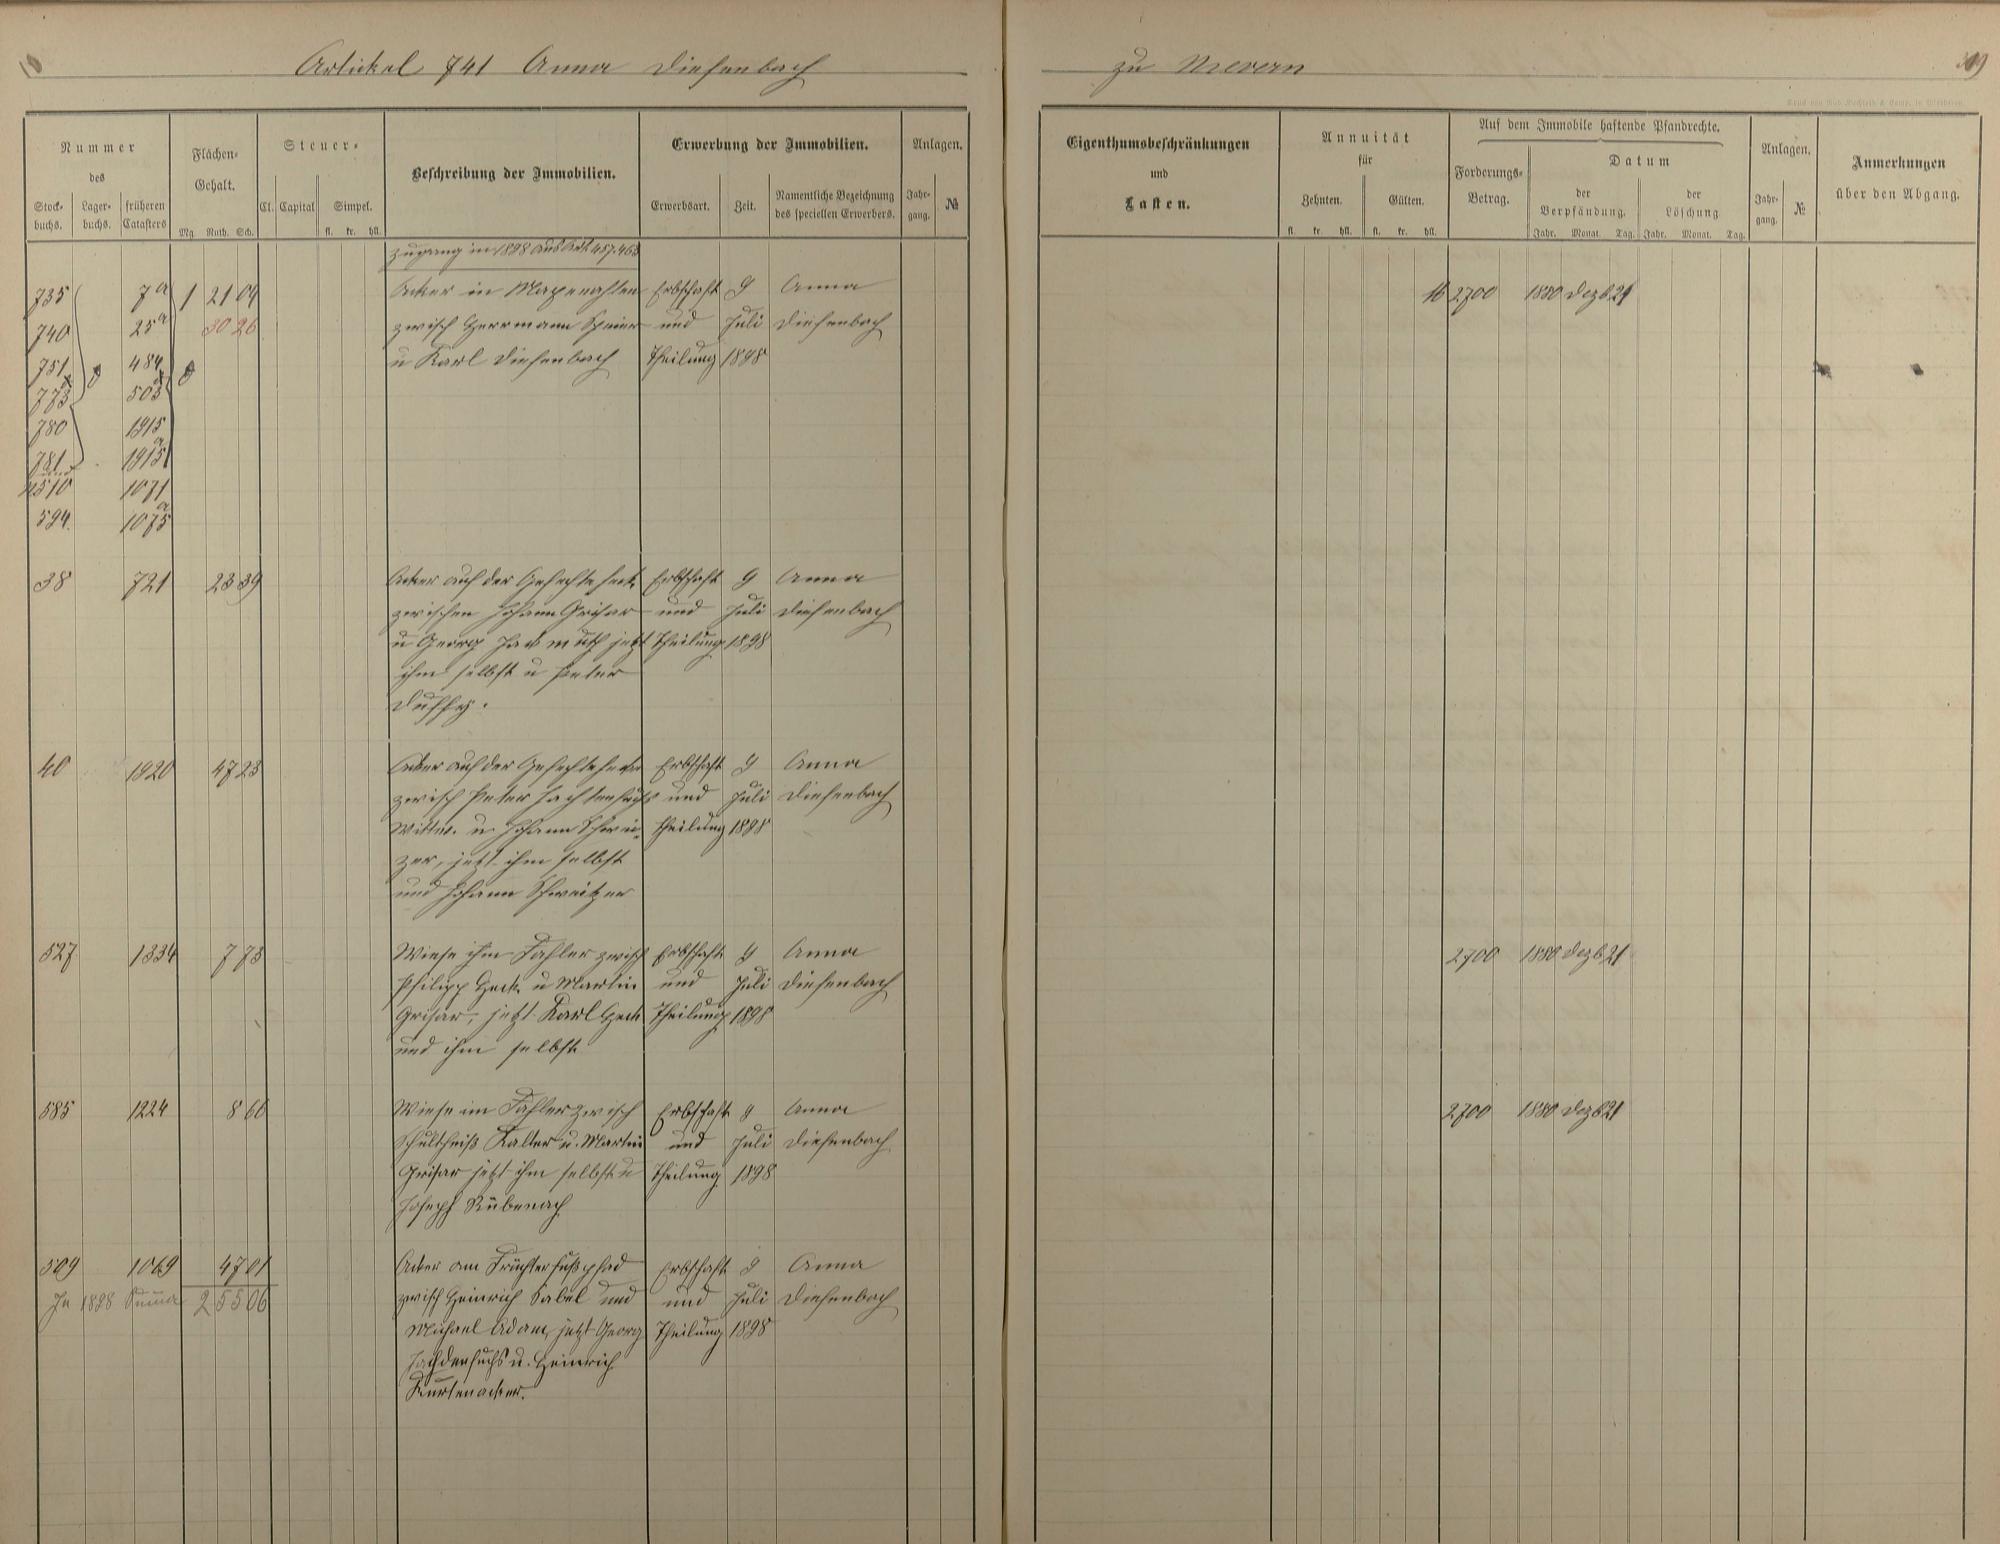 Artickel 741 Anna Diefenbach
zu Nievern
309
Nummer
des
Stock-
buchs.
Lager-
buchs.
früheren
Catasters
Flächen-
Gehalt.
Mg. Ruth. Sch.
Steuer-
Cl. Capital Simpel.
fl. kr. hll.
Beschreibung der Immobilien.
Erwerbung der Immobilien.
Erwerbsart. Zeit.
Namentliche Bezeichnung
des speciellen Erwerbers.
Anlagen.
Jahr-
gang.
№
Eigenthumsbeschränkungen
und
Lasten.
Annuität
für
Zehnten. Gülten.
fl. kr. hll. fl. kr. hll.
Auf dem Immobile haftende Pfandrechte.
Forderungs-
Betrag.
Datum
der
Verpfändung.
der
Löschung
Jahr. Monat. Tag. Jahr. Monat. Tag.
Anlagen.
Jahr-
gang.
№
Anmerkungen
über den Abgang.
Zugang in 1898 aus Art. 457.463
735 7a 1 21 04 Acker in Erbschaft 9 Anna 2700 1880 Dezb 21
740 25a 30 26 zwisch Herrmann Speier und Juli Diefenbach
751 484 u Karl Diefenbach Theilung 1898
773 503
780 1915
781 1915a
510 1071
594 1075a
38 721 23 39 Acker auf der Erbschaft 9 Anna
zwischen Johann Grisar und Juli Diefenbach
u Georg jetzt Theilung 1898
ihm selbst u Peter
40 1920 47 23 Acker auf der Erbschaft 9 Anna
zwisch Peter und Juli Diefenbach
Wittw. u. Johann Schwei- Theilung 1898
zer, jetzt ihm selbst
und Johann Schweitzer
527 1334 7 73 Wiese im Fahler zwisch Erbschaft 9 Anna 2700 1880 Dezb 21
Philipp Heck u Martin und Juli Diefenbach
Grisar, jetzt Karl Heck Theilung 1898
und ihm selbst
585 1224 8 60 Wiese im Fahler zwisch Erbschaft 9 Anna 2700 1880 Dezb 21
Schultheiß Kalter u. Martin und Juli Diefenbach
Grisar jetzt ihm selbst u Theilung 1898
Joseph Rübenach
509 1069 47 01 Acker am Früchterfußpfad Erbschaft 9 Anna
In 1898 Summa 2 55 06 zwisch Heinrich Sabel und und Juli Diefenbach
Michael Adam, jetzt Georg Theilung 1898
u. Heinrich
Kurtenacker.